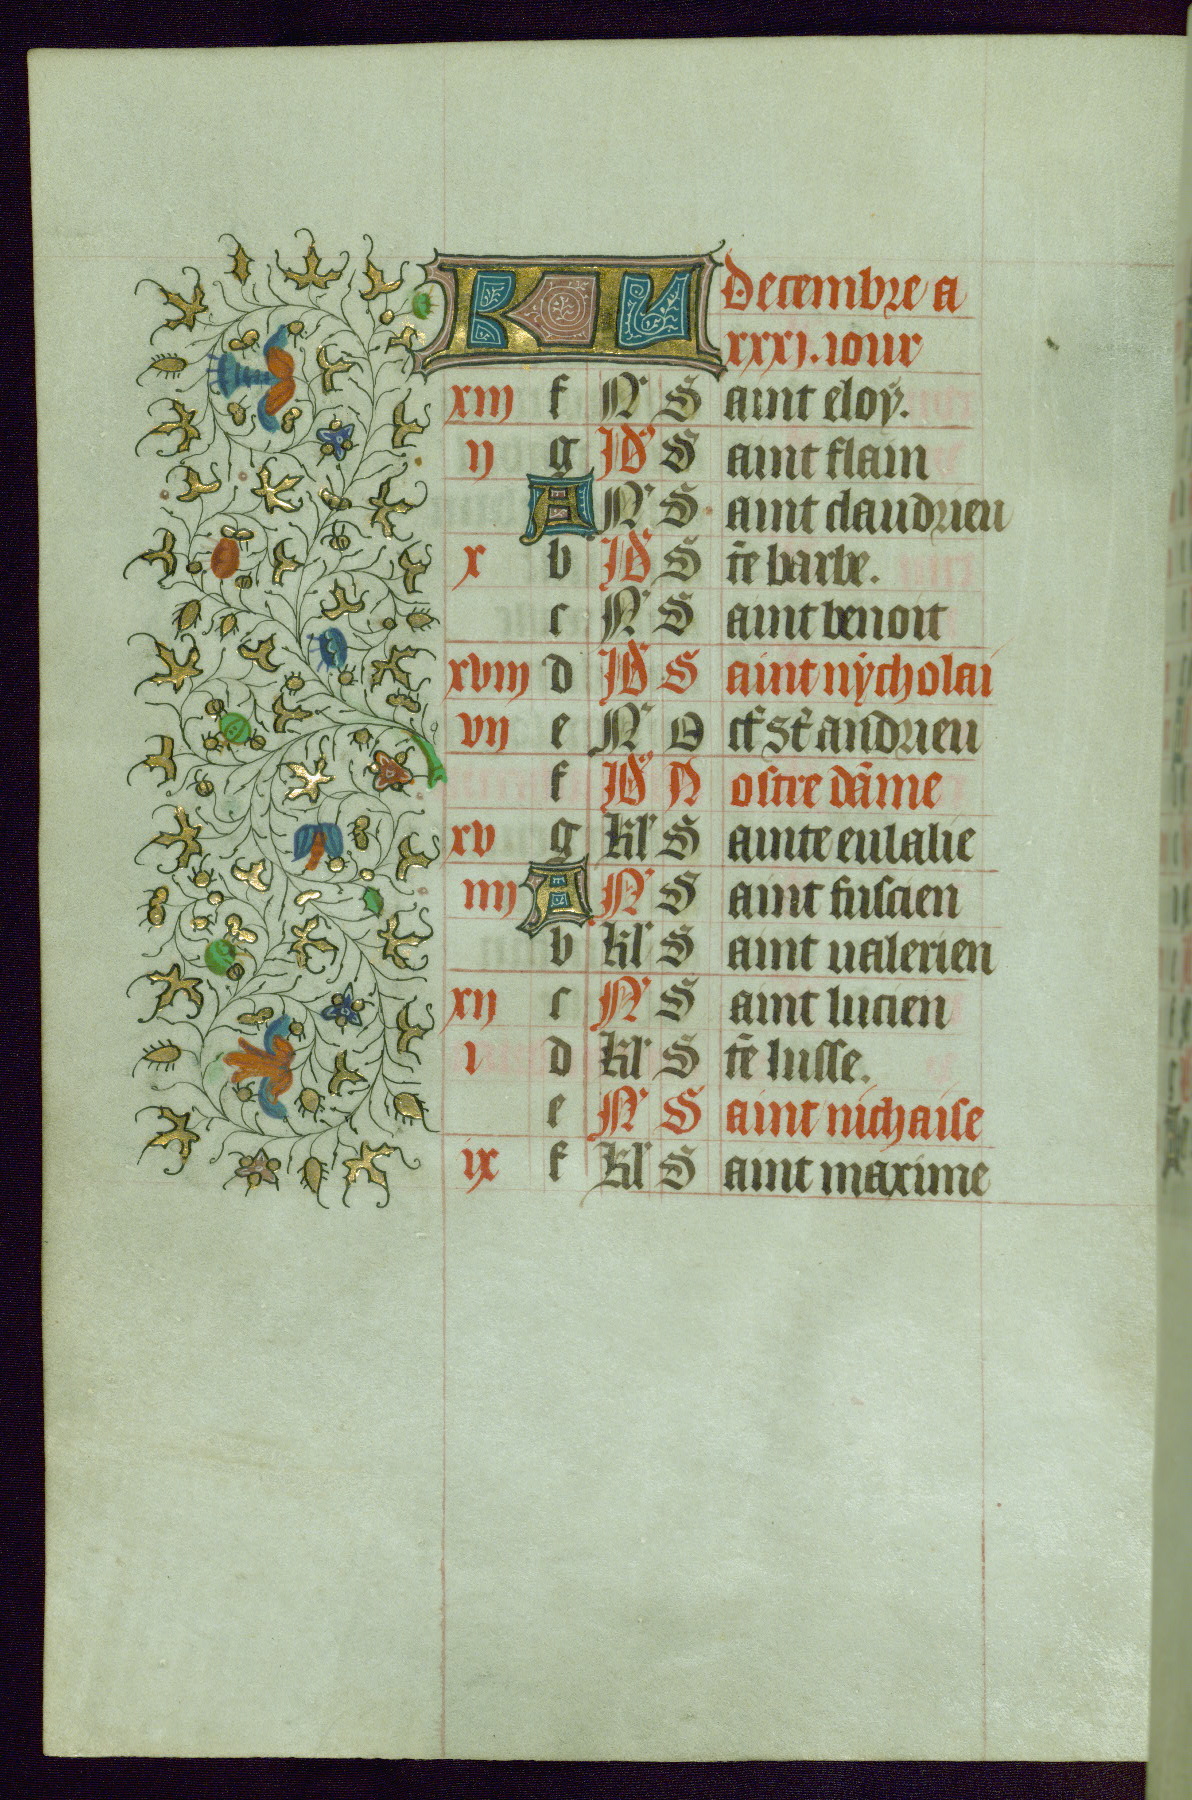 KL Decembre a
xxxi. iour
xiii f N S aint eloy.
ii g Jd S aint flain
A N S aint claudrieu
x b Jd S te barbe.
c N S aint benoit
xviii d Jd S aint nycholai
vii e N O ct st andrieu
f Jd N ostre dame
xv g kl S ainte eulalie
iiii A N S aint fuscien
b kl S aint ualerien
xii c N S aint lucien
i d kl S te lusse.
e N S aint nichaise
ix f kl S aint maxime